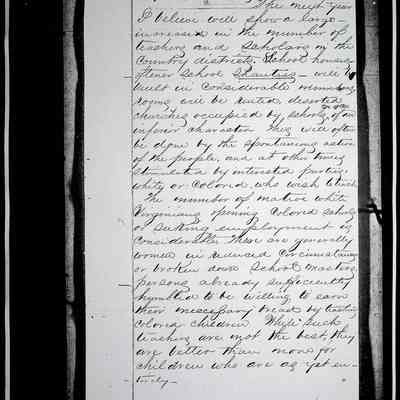 The next year
I believe will show a large
increase in the number of
teachers and scholars in the
Country districts. School houses
oftener School Shanties - will be
built in considerable numbers,
rooms will be rented, deserted
churches occupied by schools, of an
inferior character. This will often
be done by the spontaneous action
of the people, and at other times
stimulated by interested parties,
white or colored, who wish to teach.
The number of native white
Virginians opening colored schools
or seeking employment is
considerable. These are generally
women in reduced circumstances
or broken down School masters,
persons already sufficiently
humbled to be willing to earn
their necessary bread by teaching
colored children. While such
teachers are not the best, they
are better than none for
children who are as yet en-
tirely -